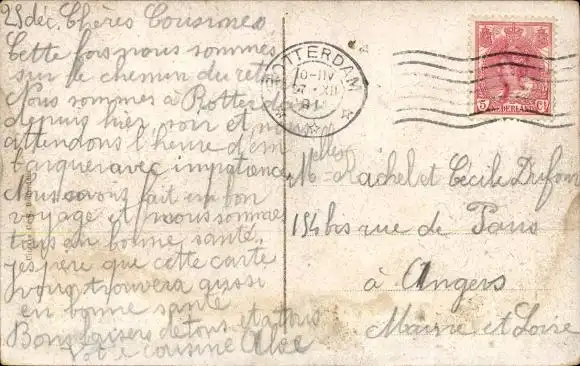 25 déc. Chères Cousines
Cette fois nous sommes
sur le chemin du reto
Nous sommes à Rotterda
depuis hier soir et nous
attendons l'heure d'em
barquer avec impatience
Nous avons fait un bon
voyage et nous sommes
tous en bonne santé
j'espère que cette carte
vous trouvera aussi
en bonne santé
Bons baisers de tous et à tous
Votre cousine
ROTTERDAM
10-11V
XII
5 Ct
NEDERLAND
Melles Rachel et Cécile Dufour
154 bis rue de Paris
à Angers
Maine et Loire